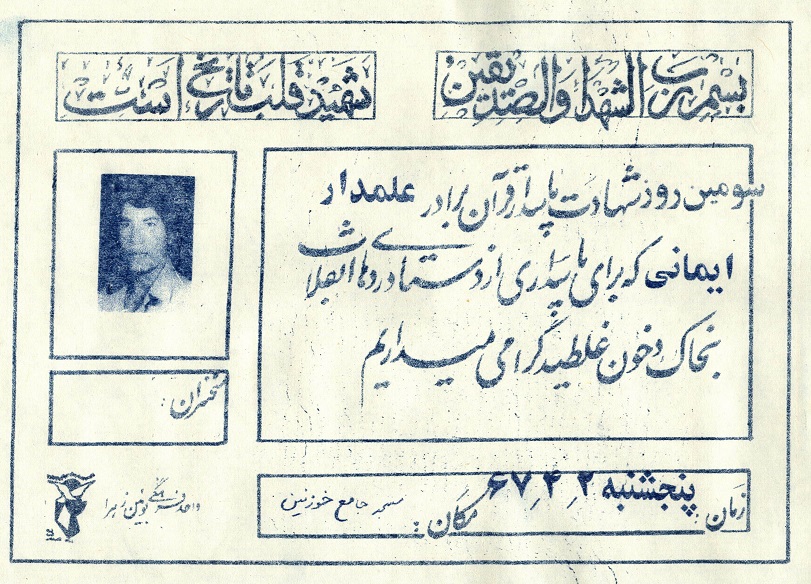 بسم رب الشهدا والصدیقین
شهید قلب تاریخ است
سومین روز شهادت پاسدار قرآن برادر علمدار
ایمانی که برای پاسداری از دستاوردهای انقلاب
بخاک و خون غلطید گرامی میداریم
سخنران:
زمان: پنجشنبه ۲_۴_۶۷
مکان: مسجد جامع خوزنین
واحد فرهنگی بوئین زهرا